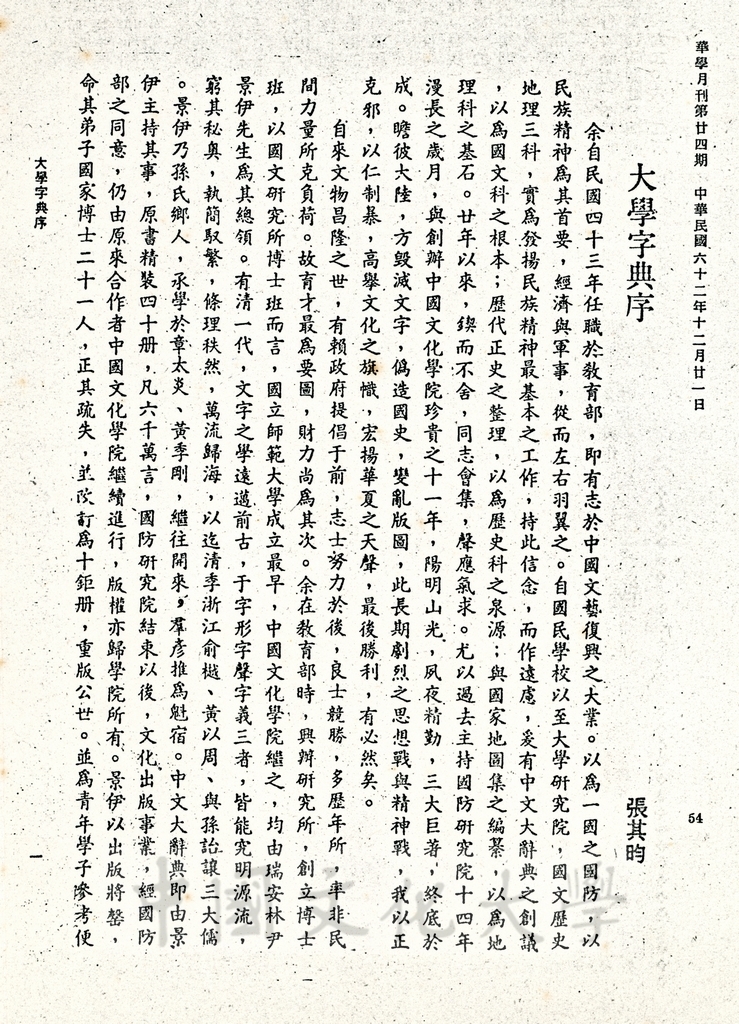 華學月刊第廿四期　中華民國六十二年十二月廿一日
54
大學字典序
張其昀
余自民國四十三年任職於教育部，即有志於中國文藝復興之大業。以為一國之國防，以
民族精神為其首要，經濟與軍事，從而左右羽翼之。自國民學校以至大學研究院，國文歷史
地理三科，實為發揚民族精神最基本之工作，持此信念，而作遠慮，爰有中文大辭典之創議
，以為國文科之根本；歷代正史之整理，以為歷史科之泉源；與國家地圖集之編纂，以為地
理科之基石。廿年以來，鍥而不舍，同志會集，聲應氣求。尤以過去主持國防研究院十四年
漫長之歲月，與創辦中國文化學院珍貴之十一年，陽明山光，夙夜精勤，三大巨著，終底於
成。瞻彼大陸，方毀滅文字，偽造國史，變亂版圖，此長期劇烈之思想戰與精神戰，我以正
克邪，以仁制暴，高舉文化之旗幟，宏揚華夏之天聲，最後勝利，有必然矣。
自來文物昌隆之世，有賴政府提倡于前，志士努力於後，良士競勝，多歷年所，率非民
間力量所克負荷。故育才最為要圖，財力尚為其次。余在教育部時，興辦研究所，創立博士
班，以國文研究所博士班而言，國立師範大學成立最早，中國文化學院繼之，均由瑞安林尹
景伊先生為其總領。有清一代，文字之學遠邁前古，于字形字聲字義三者，皆能究明源流，
窮其秘奧，執簡馭繁，條理秩然，萬流歸海，以迄清季浙江俞樾、黃以周、與孫詒讓三大儒
。景伊乃孫氏鄉人，承學於章太炎、黃季剛，繼往開來，羣彥推為魁宿。中文大辭典即由景
伊主持其事，原書精裝四十册，凡六千萬言，國防研究院結束以後，文化出版事業，經國防
部之同意，仍由原來合作者中國文化學院繼續進行，版權亦歸學院所有。景伊以出版將罄，
命其弟子國家博士二十一人，正其疏失，並改訂為十鉅册，重版公世。並為青年學子參考便
大學字典序
一
中國文化大學